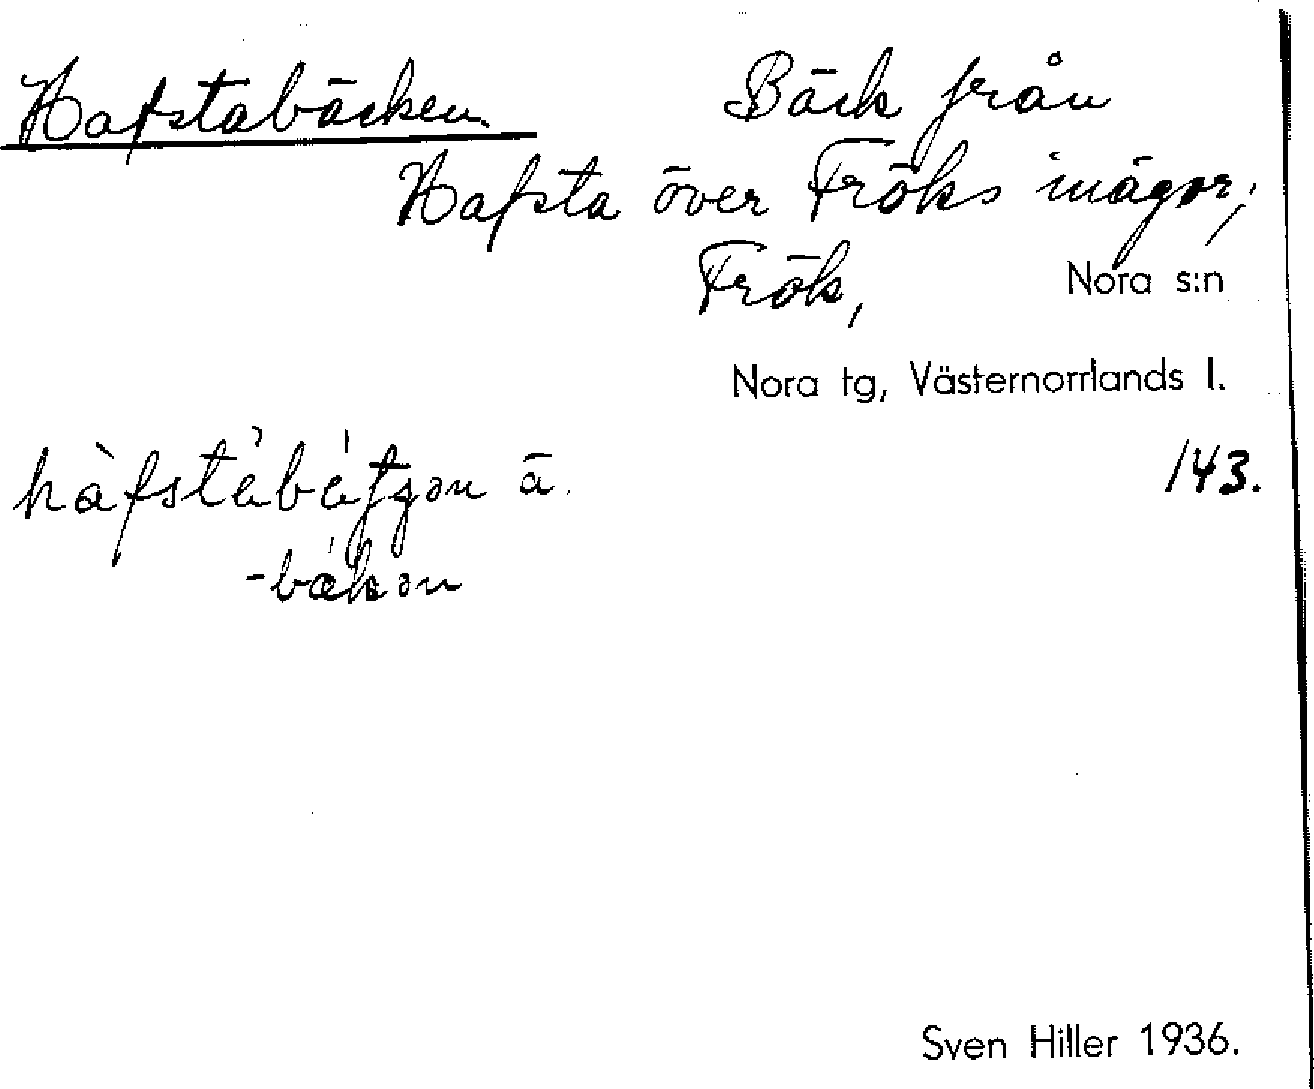 Hafstabäcken Bäck från
Hafsta över Fröks inägor,
Frök, Nora s:n
Nora tg, Västernorrlands l.
143.
ā.
Sven Hiller 1936.